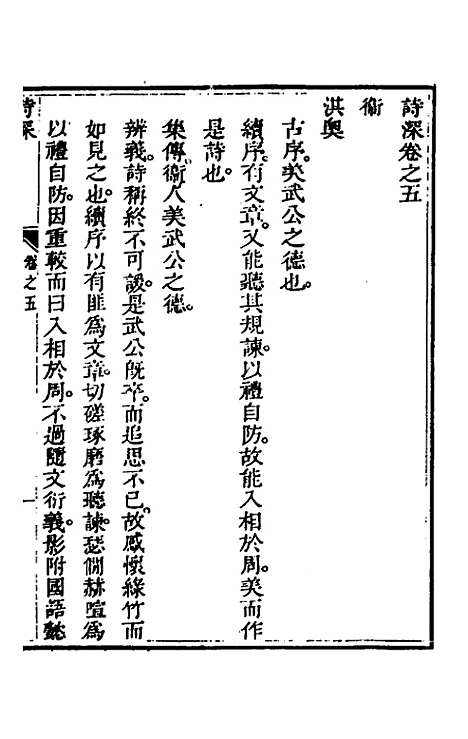 詩深卷之五
衞
淇奧
古序美武公之德也
續序有文章又能聽其規諫以禮自防故能入相於周美而作
是詩也
集傳衞人美武公之德
辨義詩稱終不可諼是武公旣卒而追思不已故感懷綠竹而
如見之也續序以有匪爲文章切磋琢磨爲聽諫瑟僩赫咺爲
以禮自防因重較而曰入相於周不過隨文衍義影附國語懿
詩深 卷之五 一